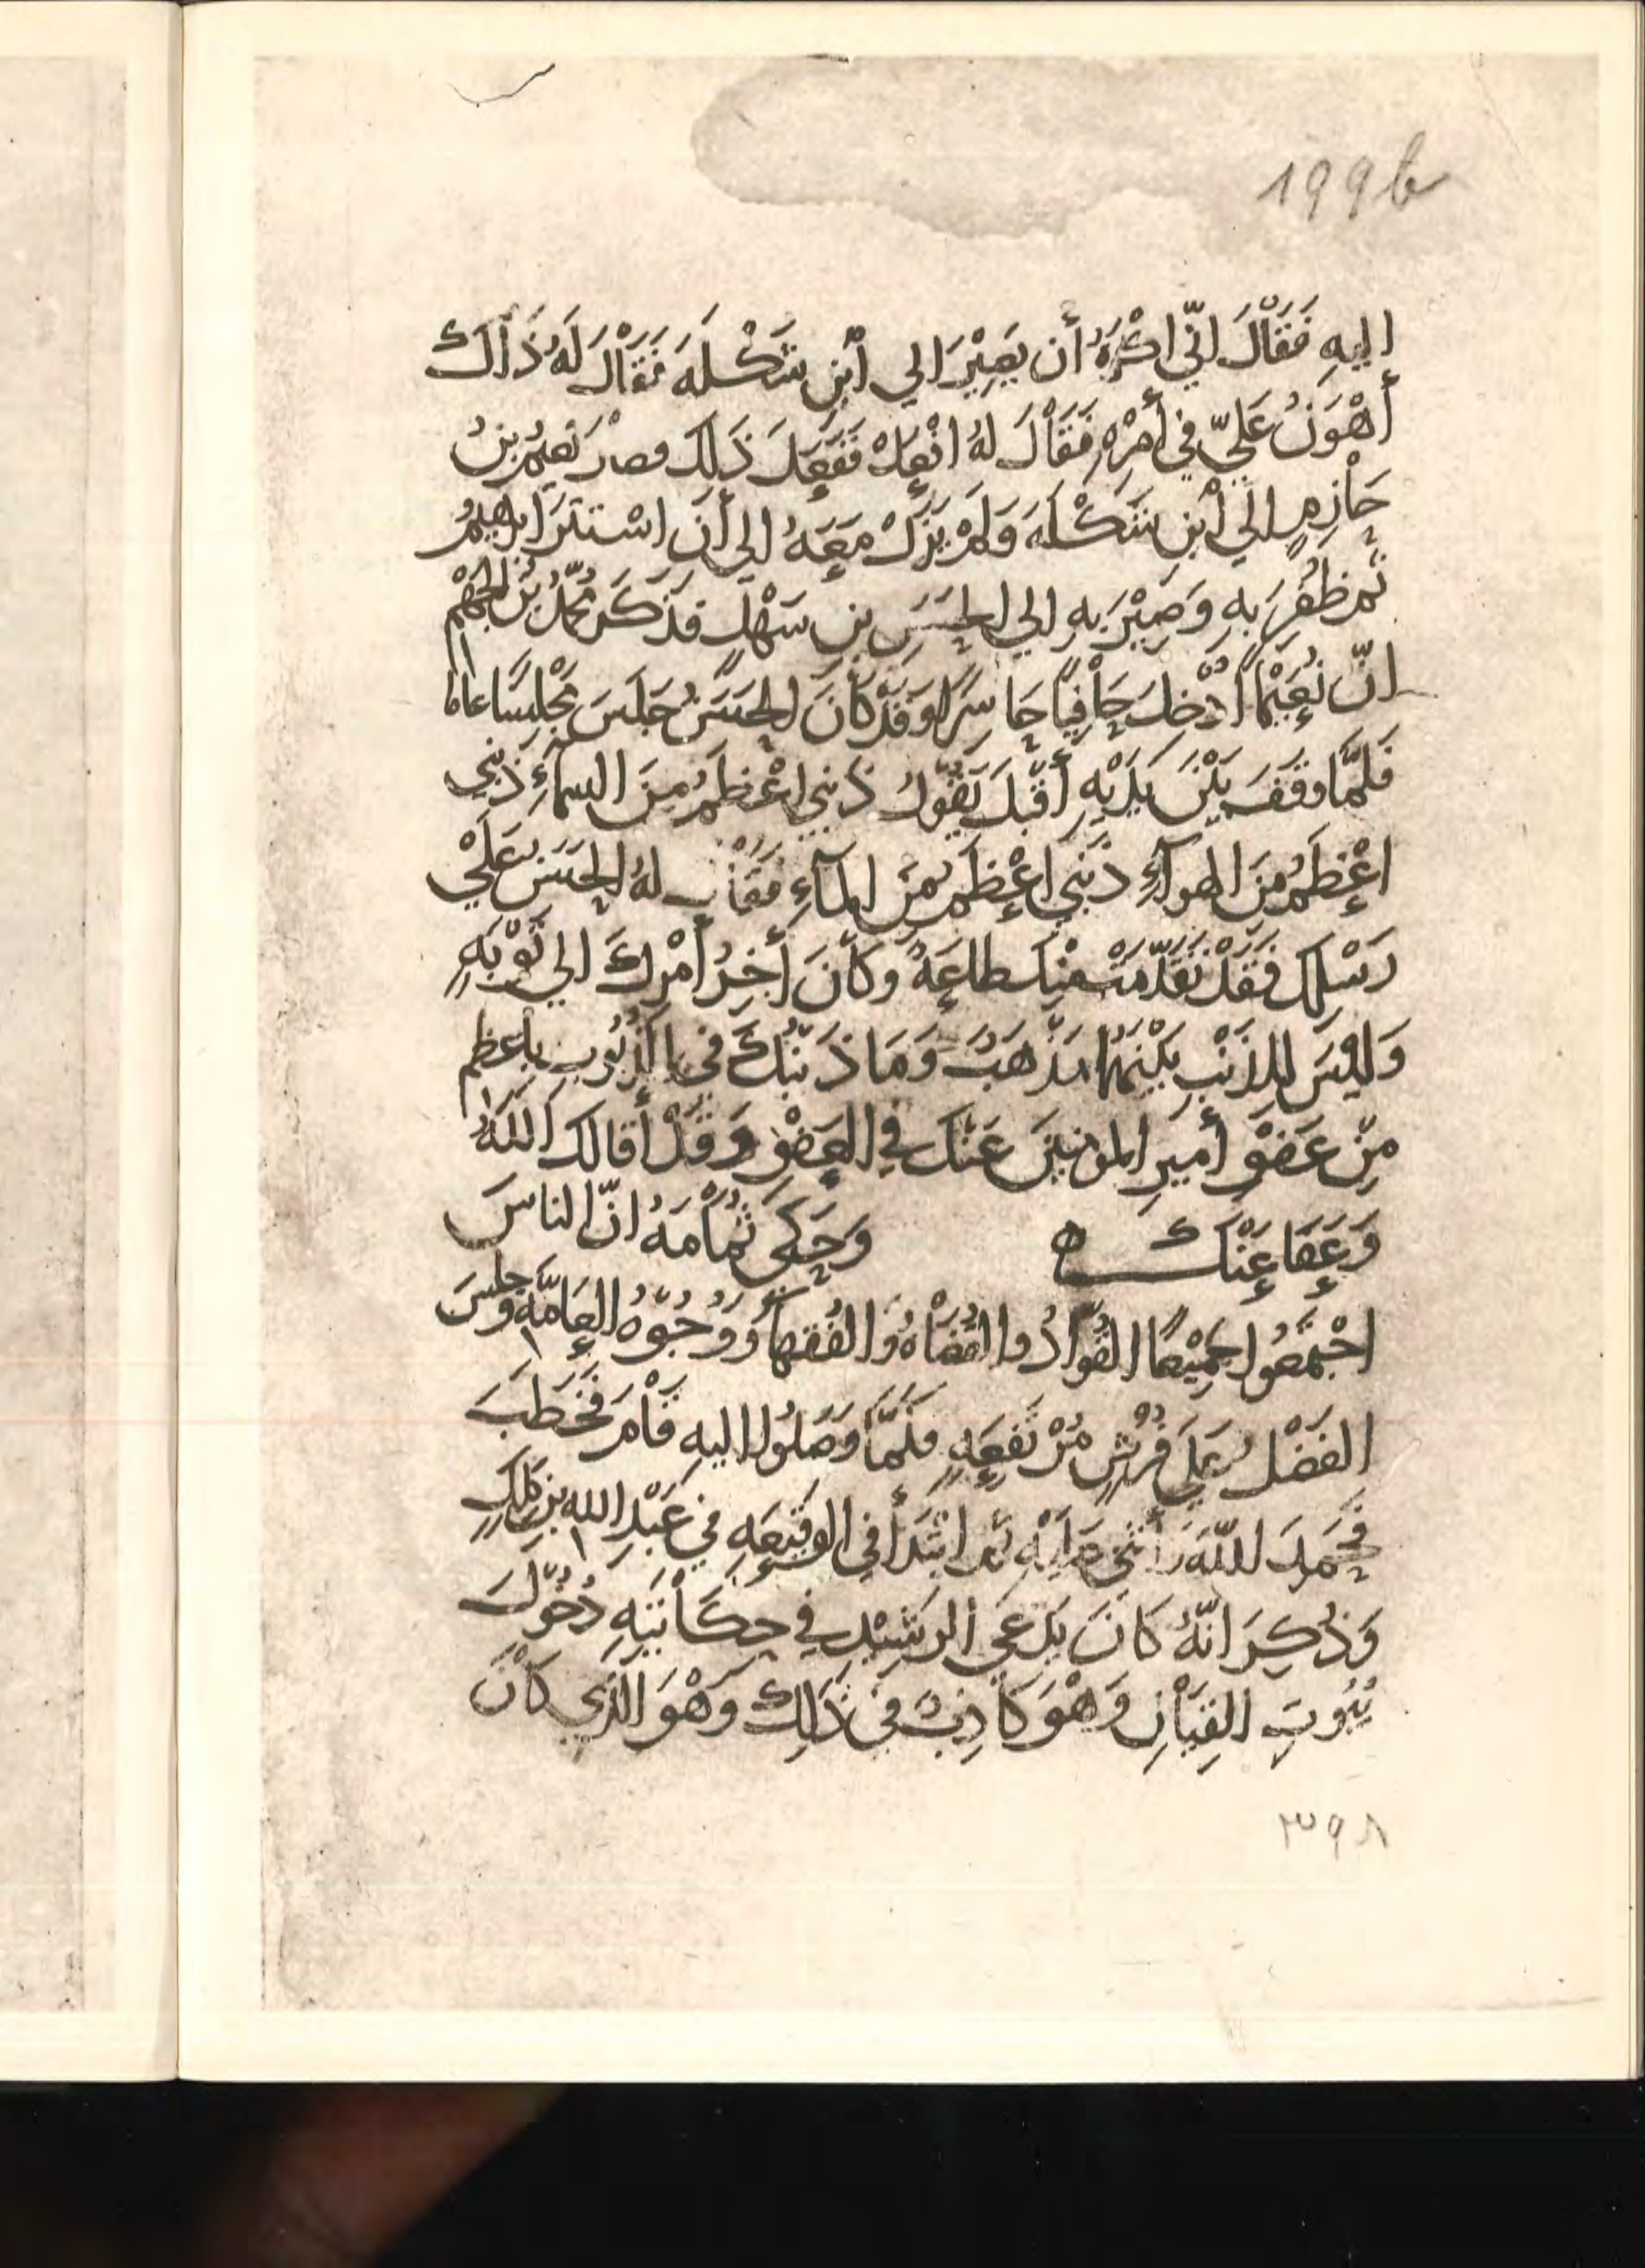 199b
اليهِ فَقَاْلَ انّي اكْرَهُ أن يَصِيْرَ الي أبْنِ شَكْلَهَ فَقَاْلَ لَهُ ذَاْلكَ
أَهْوَنُ عَلَيّ في أمْرِهِ فَقَاْلَ لهُ افْعَلْ فَفَعَلَ ذَلِكَ فصارَ نُعَيْمُ بنُ
خَاْزِمٍ الَي أبْنِ شَكْلَهَ وَلَمْ يَزَلْ مَعَهُ الي أن اسْتتَرَ ابرهيمُ
ثم ظُفِرَ بهِ وَصِيْرَ بهِ الي الحَسَنِ بنِ سَهْلٍ فذَكَرَ مُحمَّدُ بْنُ الجَهْمِ
انّ نُعَيْمًا اُدْخِلَ حَاْفِيًا حَاسِرًا وَقَدْ كَاْنَ الحَسَنُ جَلَسَ مَجْلِسًا عامًا
فَلَمَّا وقَفَ بَيْنَ يَدَيْهِ أقْبَلَ يَقُوْلُ ذنبي اعْظَمُ مِنَ السمآءِ ذَنْبي
اعْظَمُ مِنَ الهوآءِ ذَنْبي اعْظَمُ مِنَ المآءِ فقَاْلَ لهُ الحَسَنُ عَلَي
رَسْلِكَ فَقَدْ تقَدَّمَتْ مِنْكَ طاعَةٌ وَكاْنَ أَخِرُ أمْرِكَ الي تَوْبَهٍ
وَلَيْسَ لِلذَنْبِ بَيْنَهُمَا مَذْهَبٌ وَمَا ذَنْبُكَ في الذُنُوبِ بأعظم
مِنْ عَفْوِ أميرِ المومنينَ عَنْكَ في العَفْوِ وَقَدْ أقالَكَ اللّهُ
وَعَفَا عَنْكَ ه وَحَكَى ثُمَاْمَهُ انّ الناسَ
اجْتَمَعُوا جَمِيْعًا القُوّادُ والقُضَاْهُ والفُقَهاءُ وَوُجُوْهُ العَامَّهِ وجَلَسَ
الفَضْلُ عَلَي فُرُشٍ مُرْتَفِعَهٍ فلَمَّا وَصَلُوا اليهِ قَاْمَ فَخَطَبَ
فحَمِدَ اللّهَ وأثني عَلَيْهِ ثم ابْتَدَأَ في الوَقِيْعَهِ في عَبْدِ الله بن مَلكٍ
وَذُكِرَ انّهُ كَاْنَ يَدّعي الرَشِيْدِ في حِكَاْيَتِهِ دُخُوْلَ
بُيُوتِ القِيَاْنِ وَهْوَ كَاْذِبٌ في ذَلِكَ وَهْوَ الّذي كاْنَ
٣٩٨